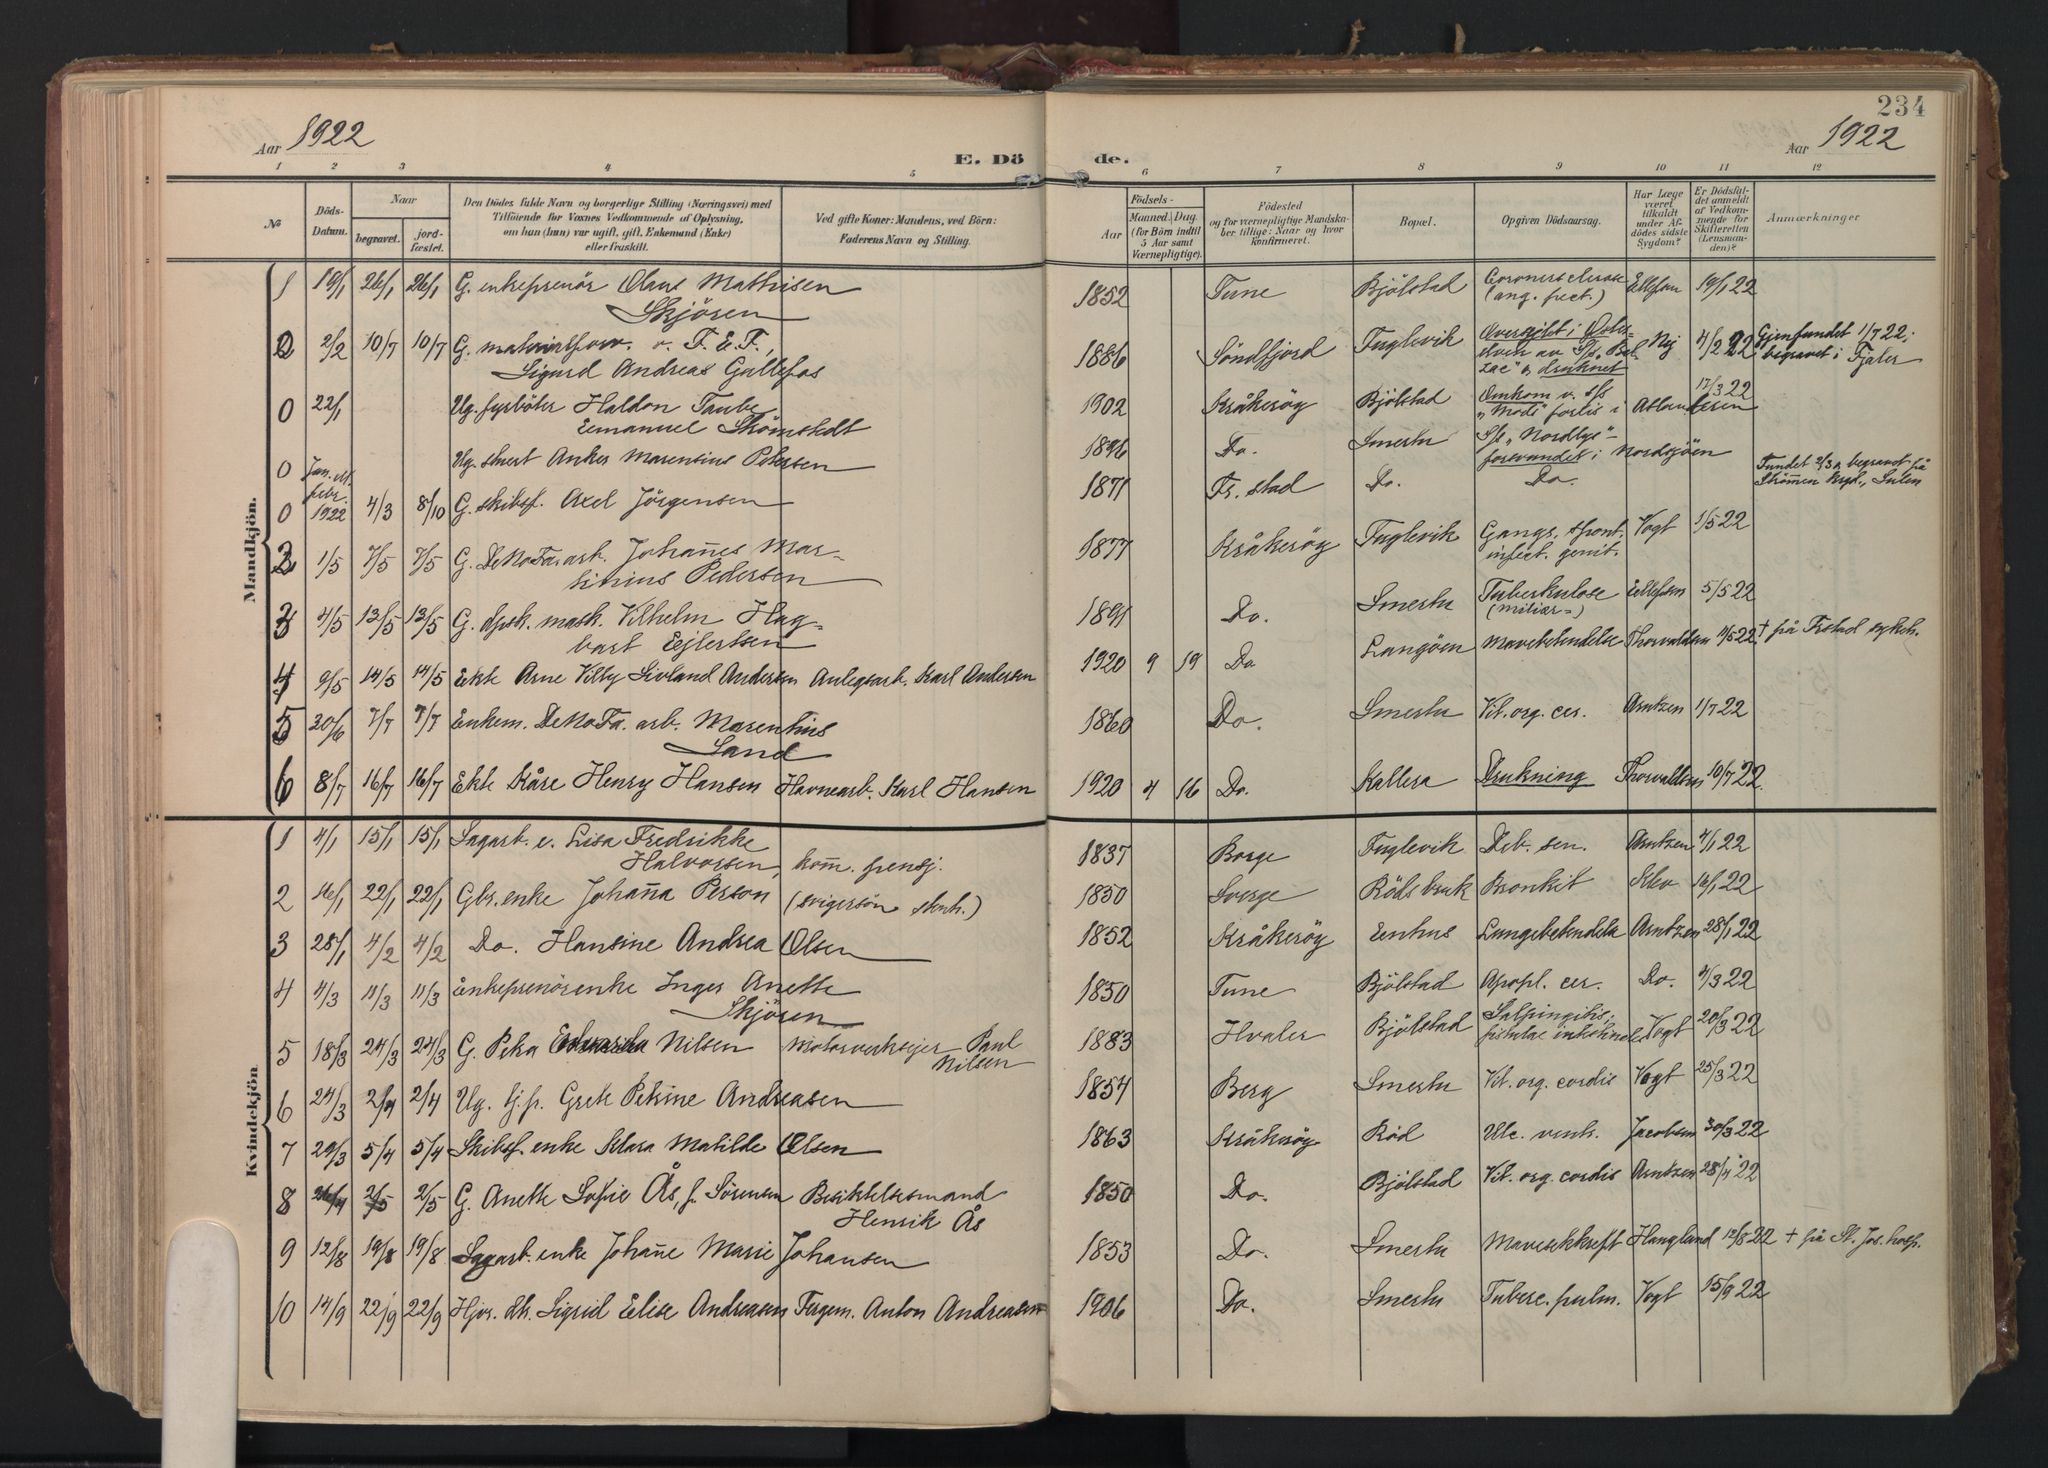 234
Aar 1922
E. Dö de.
Aar 1922
1 2 3 4 5 6 7 8 9 10 11 12
No
Döds-Datum.
Naar
begravet.
jord-fæstet.
Den Dödes fulde Navn og borgerlige Stilling (Næringsvei) med
Tilföiende for Voxnes Vedkommende af Oplysning,
om han (hun) var ugift, gift, Enkemand (Enke)
eller fraskilt.
Ved gifte Koner: Mandens, ved Börn:
Faderens Navn og Stilling.
Födsels-
Aar
Maaned. Dag.
(for Börn indtil
5 Aar samt
Værnepligtige).
Födested
og for værnepligtige Mandska-
ber tillige: Naar og hvor
Konfirmeret.
Bopæl.
Opgiven Dödsaarsag.
Har Læge
været
tilkaldt
under Af-
dödes sidste
Sygdom?
Er Dödsfal-
det anmeldt
af Vedkom-
mende for
Skifteretten
(Lensman-
den)?
Anmærkninger
Mandkjön.
1 19/1 26/1 26/1 G. entreprenör Olaus Mathisen Skjören 1852 Tune Bjölstad (ang. pect.) Ellefsen 19/1 22
2 2/2 10/7 10/7 G. v. F. E. F., Sigurd Andreas Gallefos 1886 Söndfjord Fuglevik & druknet Nej 4/2 22 Gjenfundet 1/7 22; begravet i Fjaler
0 22/1 Ug. fyrböter Haldon Taube Emanuel Strömstedt 1902 Kråkeröy Bjölstad Omkom v. s/s "Mod's" forlis i Atlanteren 17/3 22
0 Jan. el. febr. 1922 Ug. stuert Anker Marensius Petersen 1896 Do. Smertu S/s "Nordlys" forsvundet i Nordsjöen
0 4/3 8/10 G. skibsf. Axel Jörgensen 1871 Fr.stad Do. Do. Fundet 2/3 & begravet på Strömen krgd., Sulen
2 1/5 7/5 7/5 G. DeNoFa. arb. Johañes Mar- tinius Pedersen 1877 Kråkeröy Fuglevik Gangr. spont. infect. genit. Vogt 1/5 22
3 4/5 13/5 13/5 G. dpsk. mask. Vilhelm Hag- bart Ejlertsen 1891 Do. Smertu Tuberkulose (miliær-) Ellefsen 5/5 22
4 9/5 14/5 14/5 Ekte Arne Villy Sivland Andersen Anlegsarb. Karl Andersen 1920 9 19 Do Langöen Mavebetendelse Thorvaldsen 11/5 22 † på Frstad sykeh.
5 30/6 7/7 7/7 Enkem. DeNoFa. arb. Marentius Sand 1860 Do. Smertu Vit. org. cer. Arntzen 1/7 22
6 8/7 16/7 16/7 Ekte Kåre Henry Hansen Havnearb. Karl Hansen 1920 4 16 Do. Kallera Drukning Thorvaldsen 10/7 22
Kvindekjön
1 4/1 15/1 15/1 Sagarb. e. Lisa Fredrikke Halvorsen, kom̃. pensj. 1837 Borge Fuglevik Deb. sen. Arntzen 4/1 22
2 16/1 22/1 22/1 Gbr. enke Johaña Person (svigersön stenh.) 1850 Sverge Röds bruk Bronkit 16/1 22
3 28/1 4/2 4/2 Do. Hansine Andrea Olsen 1852 Kråkeröy Enhus Lungebetendelse Arntzen 28/1 22
4 4/3 11/3 11/3 Entreprenörenke Inger Anette Skjören 1850 Tune Bjölstad Apopl. cer. Do. 4/3 22
5 18/3 24/3 24/3 G. Petra Nilsen Motorverksejer Paul Nilsen 1883 Hvaler Bjölstad Salpingitis; fistulae intestinales Vogt 20/3 22
6 24/3 2/4 2/4 Ug. tj.p. Grete Petrine Andreasen 1854 Berg Smertu Vit. org. cordis Vogt 25/3 22
7 29/3 5/4 5/4 Skibsf. enke Klara Matilde Olsen 1863 Kråkeröy Röd Ulc. ventr. Jacobsen 30/3 22
8 26/4 2/5 2/5 G. Anette Sofie Ås, f. Sörensen Besiktelsesmand Henrik Ås 1850 Do. Bjölstad Vit. org. cordis Arntzen 28/4 22
9 12/8 19/8 19/8 Sagarb. enke Johañe Marie Johansen 1853 Do. Smertu Mavesekkreft Haugland 12/8 22 † på St. Jos. hosp.
10 14/9 22/9 22/9 Hjv. dt. Sigrid Elise Andreasen Fergem. Anton Andreasen 1906 Do. Smertu Tuberc. pulm. Vogt 15/9 22